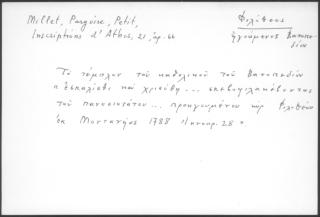 Millet, Pargoire, Petit,
Inscriptions d'Athos, 21, ἀρ. 66
Φιλόθεος
ἡγούμενος Βατοπε-
δίου
Τὸ τέμπλον τοῦ καθολικοῦ τοῦ Βατοπεδίου
καὶ ... σκευοφυλακεύοντος
τοῦ πανοσιωτάτου ... προηγουμένου κὺρ Φιλοθέου
ἐκ Μουτανίας 1788 ἰανουαρ. 28".